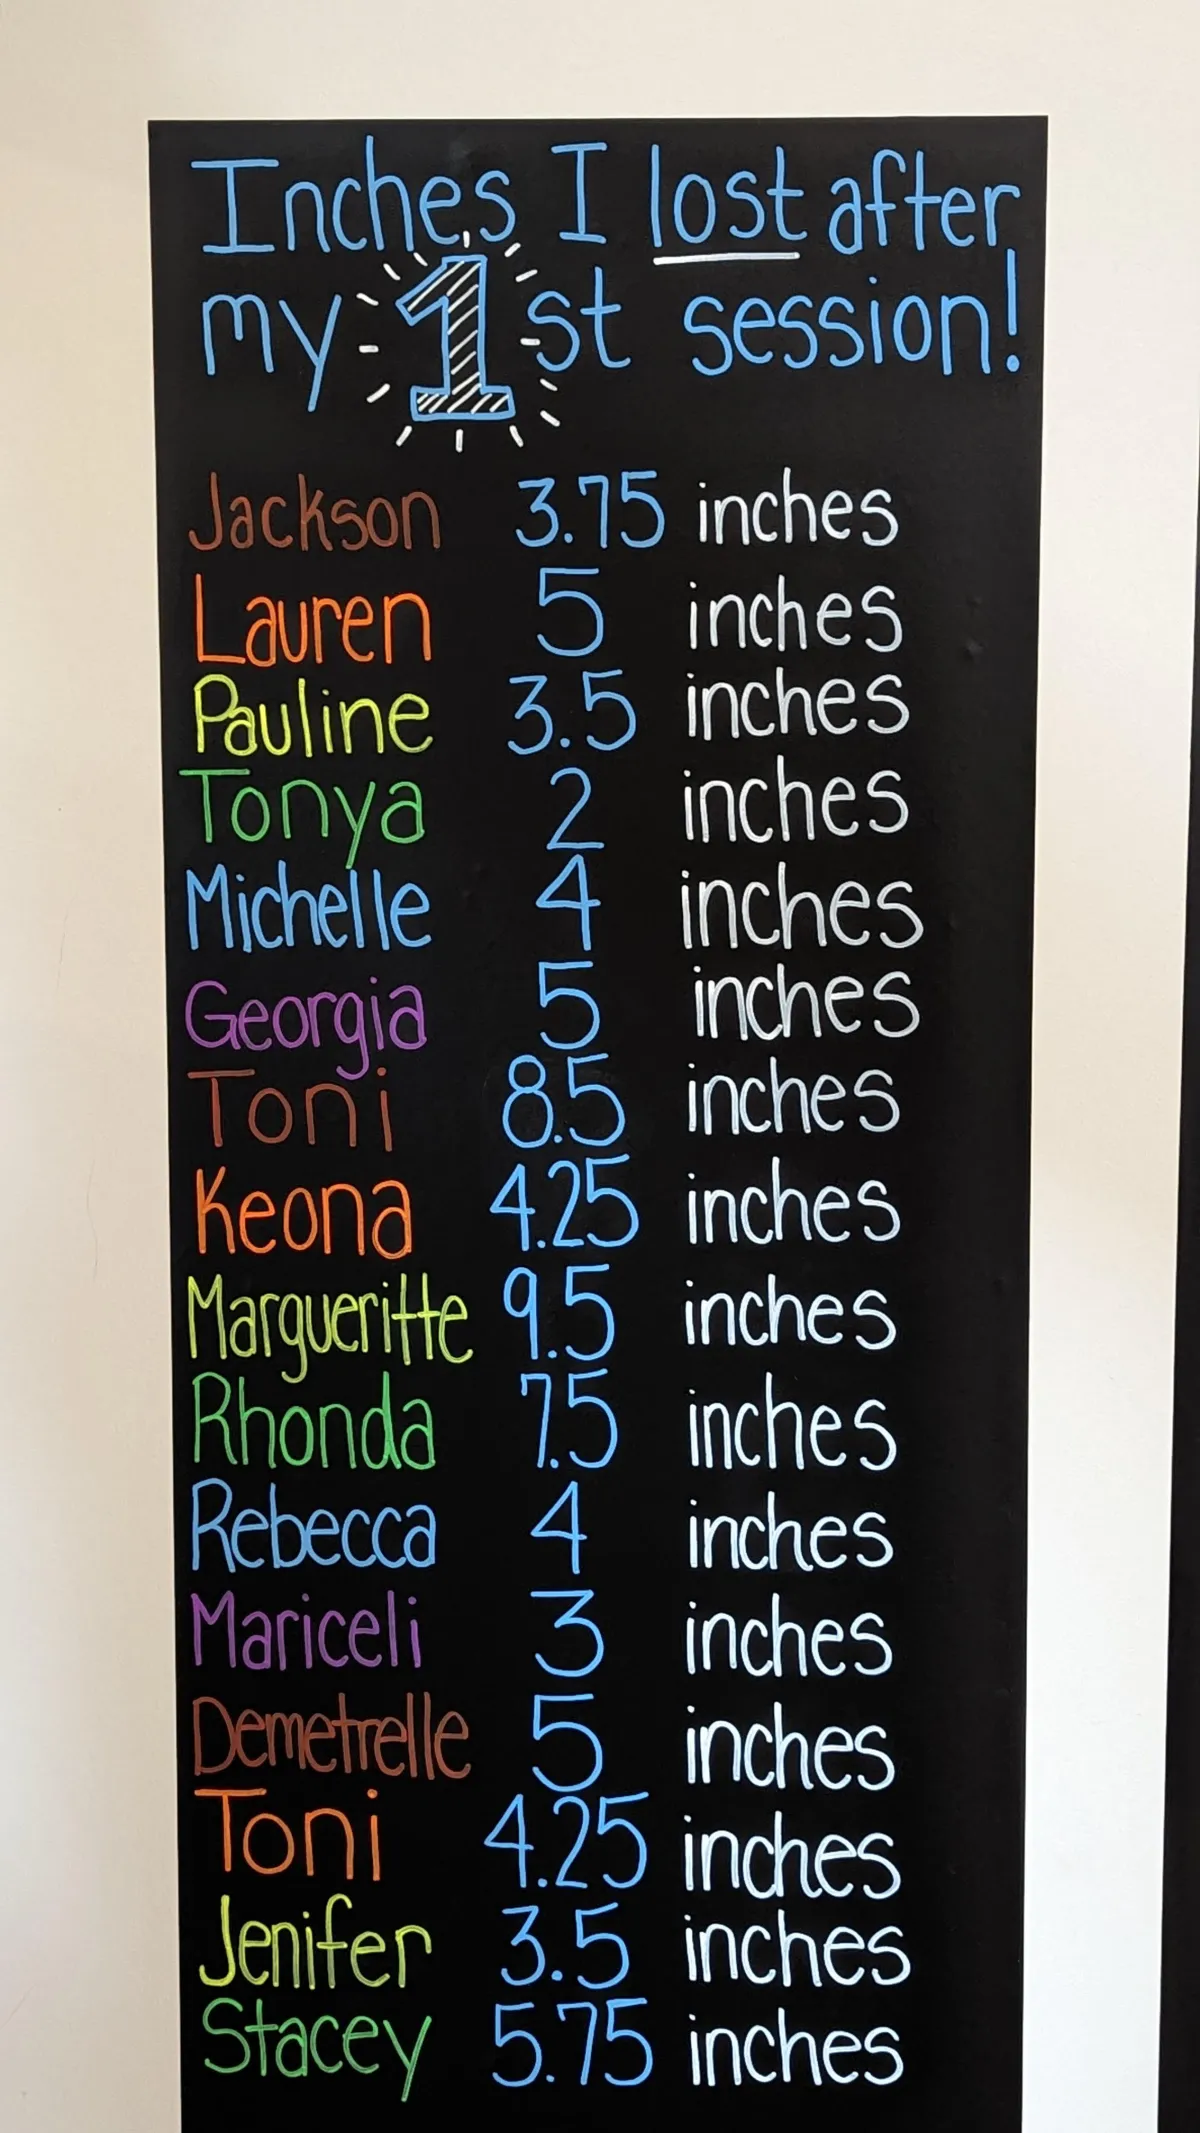 Inches I lost after
my 1st session!
Jackson 3.75 inches
Lauren 5 inches
Pauline 3.5 inches
Tonya 2 inches
Michelle 4 inches
Georgia 5 inches
Toni 8.5 inches
Keona 4.25 inches
Margueritte 9.5 inches
Rhonda 7.5 inches
Rebecca 4 inches
Mariceli 3 inches
Demetrelle 5 inches
Toni 4.25 inches
Jenifer 3.5 inches
Stacey 5.75 inches